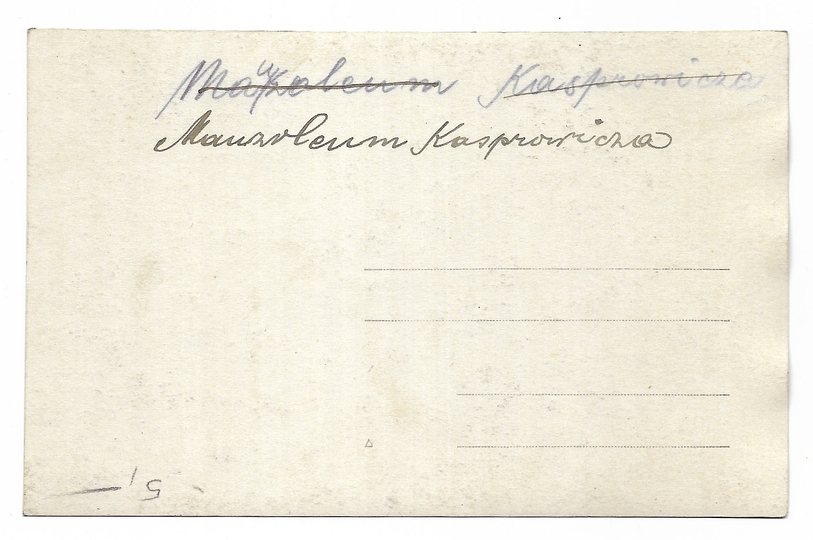 Mauzoleum Kasprowicza
Mauzoleum Kasprowicza
5,—